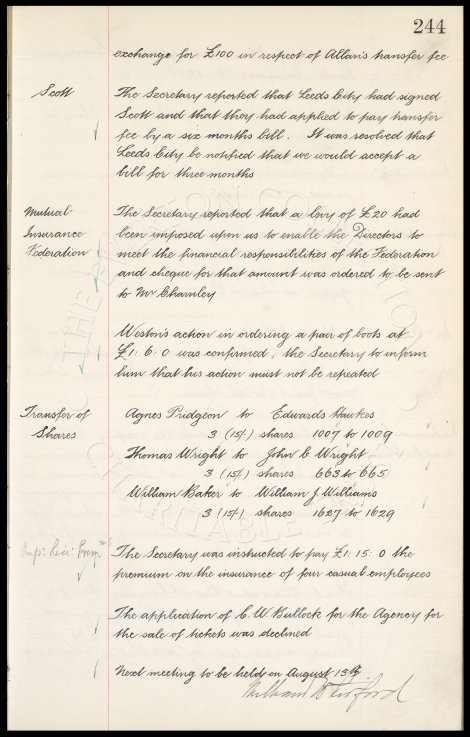 244
exchange for £100 in respect of Allan's transfer fee
Scott
The Secretary reported that Leeds City had signed
Scott and that they had applied to pay transfer
fee by a six months bill. It was resolved that
Leeds City be notified that we would accept a
bill for three months
Mutual
Insurance
Federation
The Secretary reported that a levy of £20 had
been imposed upon us to enable the Directors to
meet the financial responsibilities of the Federation
and cheque for that amount was ordered to be sent
to Mr Charnley
Weston's action in ordering a pair of boots at
£1: 6: 0 was confirmed, the Secretary to inform
him that his action must not be repeated
Transfer of
Shares
Agnes Pridgeon to Edwards Hawkes
3 (15/-) shares 1007 to 1009
Thomas Wright to John C Wright
3 (15/-) shares 663 to 665
William Baker to William J. Williams
3 (15/-) shares 1627 to 1629
The Secretary was instructed to pay £1: 15: 0 the
premium on the insurance of four casual employees
The application of C. W Bullock for the Agency for
the sale of tickets was declined
Next meeting to be held on August 13th.